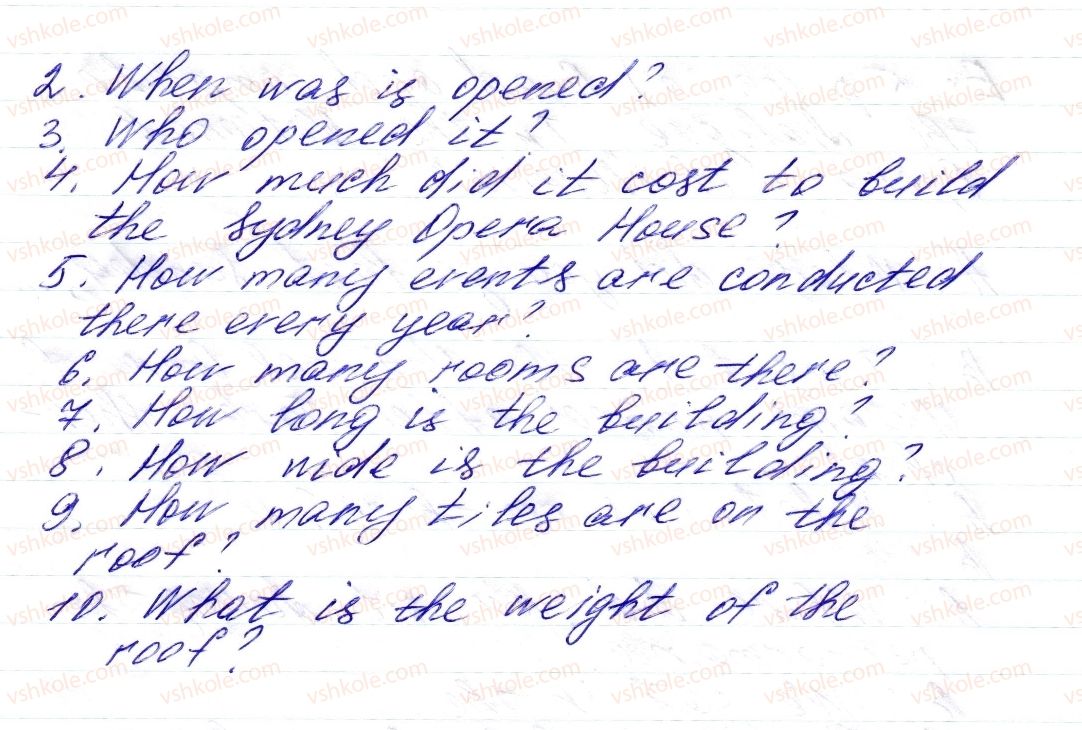 2. When was is opened?
3. Who opened it?
4. How much did it cost to build
the Sydney Opera House?
5. How many events are conducted
there every year?
6. How many rooms are there?
7. How long is the building?
8. How wide is the building?
9. How many tiles are on the
roof?
10. What is the weight of the
roof?